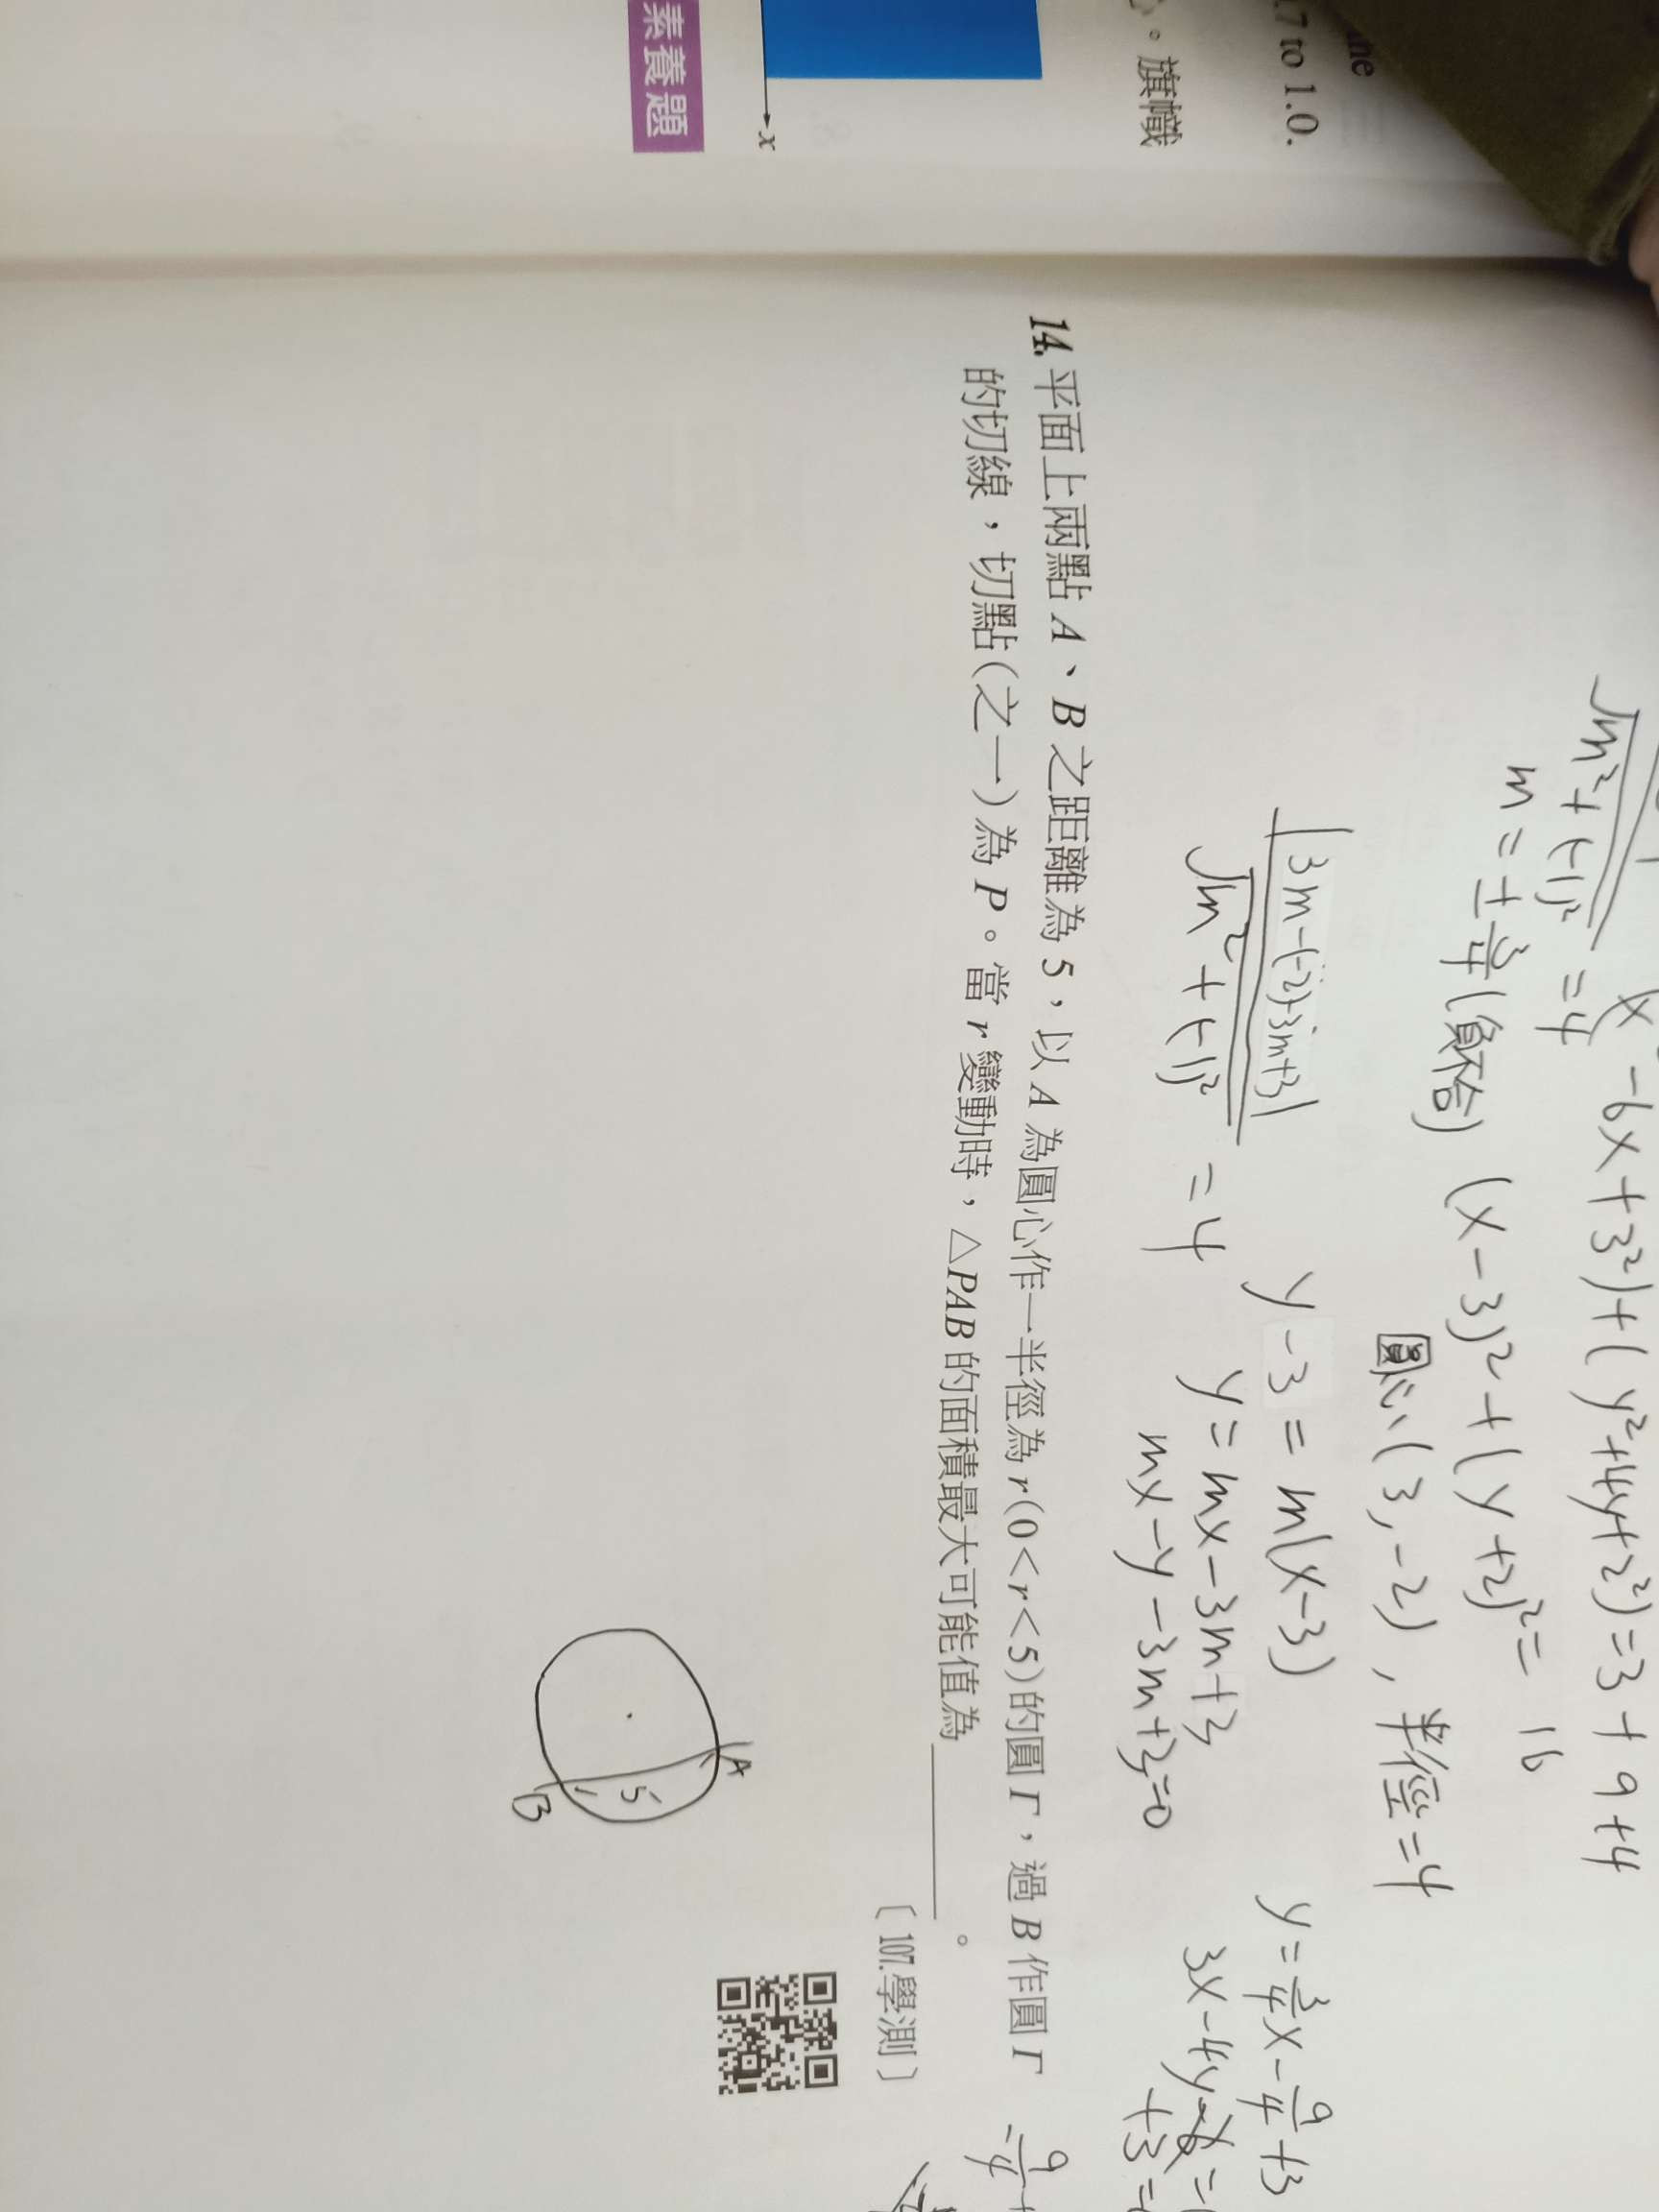 he
17 to 1.0.
。旗幟
x
素養題
m²+(-1)² = 4
m = ±3/4 (負不合)
x -6x+3²)+(y²+4y+2²)=3+9+4
(x-3)²+(y+2)²= 16
圓心(3,-2), 半徑=4
|3m-(-2)+3m+3|
√m²+(-1)² = 4
y-3=m(x-3)
y=mx-3m+3
mx-y-3m+3=0
y=3/4x-9/4+3
3x-4y
+3=
14. 平面上兩點 A、B 之距離為 5,以 A 為圓心作一半徑為 r(0<r<5)的圓 Γ,過 B 作圓 Γ
的切線,切點(之一)為 P。當 r 變動時,△PAB 的面積最大可能值為________。
〔107.學測〕
-9/4+
A
5
B